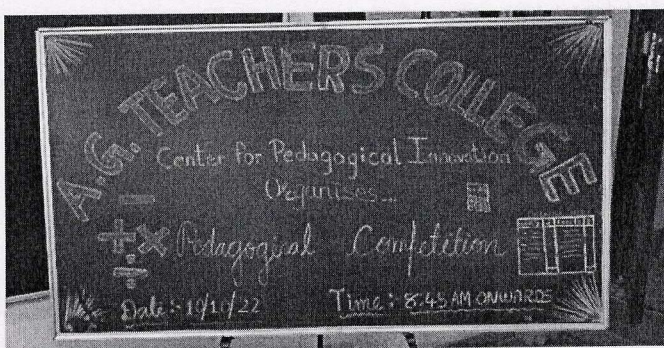 A.G. TEACHERS COLLEGE
Center for Pedagogical Innovation
Organises...
Pedagogical Competition
Date :- 19/10/22
Time : 8:45 AM ONWARDS